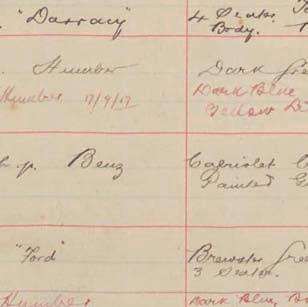 "Darracq" 4 Seater
Body.
Humber Dark Gre
Humber 17/9/17 Dark Blue
Yellow Li
h.p. Benz Cabriolet C
Painted G
"Ford" Brewster Gree
3 Seater.
Humber Dark Blue, B